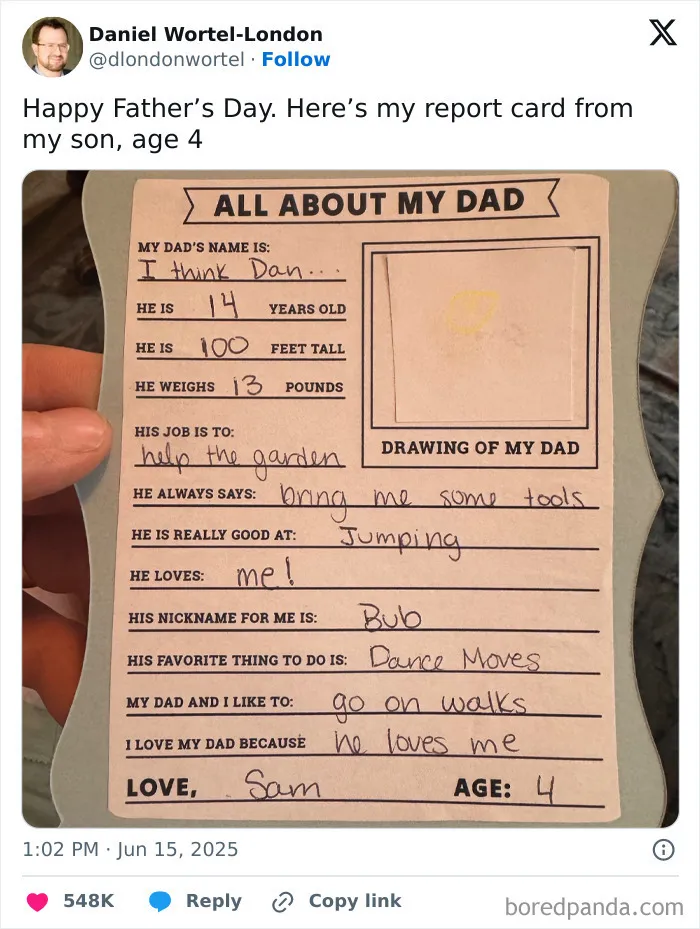 Daniel Wortel-London
@dlondonwortel · Follow
Happy Father’s Day. Here’s my report card from
my son, age 4
ALL ABOUT MY DAD
MY DAD'S NAME IS:
I think Dan...
HE IS 14 YEARS OLD
HE IS 100 FEET TALL
HE WEIGHS 13 POUNDS
HIS JOB IS TO:
help the garden
DRAWING OF MY DAD
HE ALWAYS SAYS: bring me some tools
HE IS REALLY GOOD AT: Jumping
HE LOVES: me!
HIS NICKNAME FOR ME IS: Bub
HIS FAVORITE THING TO DO IS: Dance Moves
MY DAD AND I LIKE TO: go on walks
I LOVE MY DAD BECAUSE he loves me
LOVE, Sam AGE: 4
1:02 PM · Jun 15, 2025
548K Reply Copy link
boredpanda.com